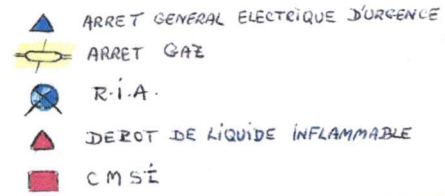 ARRET GENERAL ELECTRIQUE D'URGENCE
ARRET GAZ
R.I.A.
DEPOT DE LIQUIDE INFLAMMABLE
CMSI